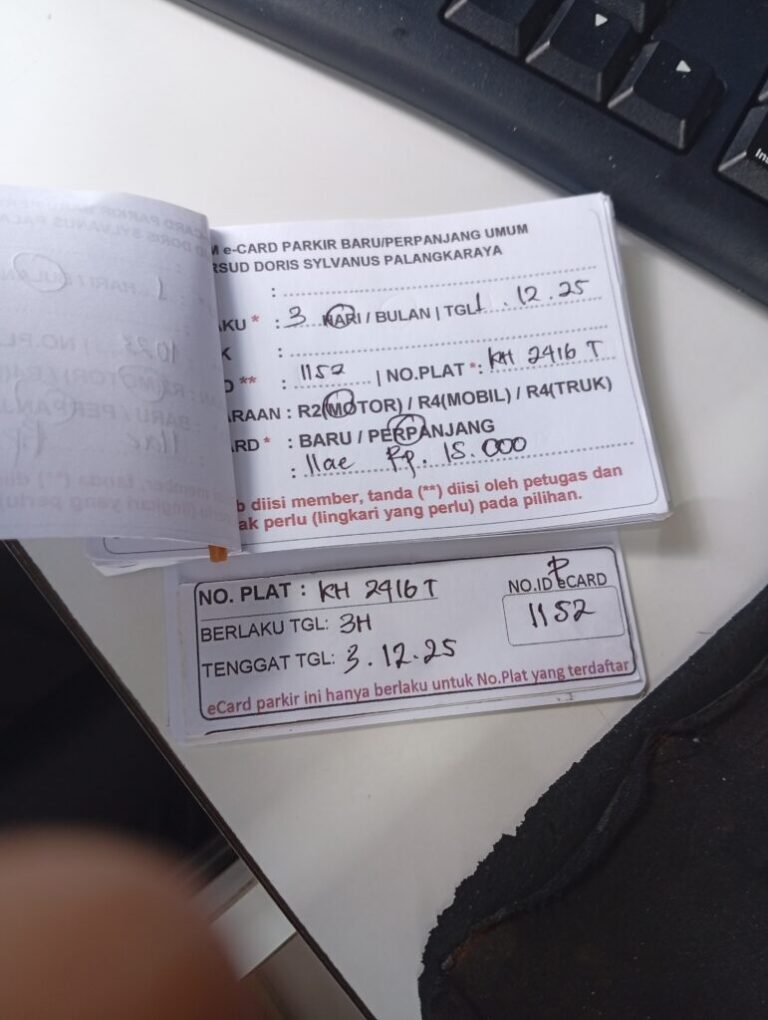 e-CARD PARKIR BARU/PERPANJANG UMUM
RSUD DORIS SYLVANUS PALANGKARAYA
:
KU * : 3 HARI / BULAN | TGL 1 . 12 . 25
K :
** : 1152 | NO.PLAT *: KH 2416 T
RAAN : R2(MOTOR) / R4(MOBIL) / R4(TRUK)
RD * : BARU / PERPANJANG
: Rp. 15.000
b diisi member, tanda (**) diisi oleh petugas dan
ak perlu (lingkari yang perlu) pada pilihan.
NO. PLAT : KH 2416 T
NO.ID eCARD
1152
BERLAKU TGL: 3H
TENGGAT TGL: 3.12.25
eCard parkir ini hanya berlaku untuk No.Plat yang terdaftar